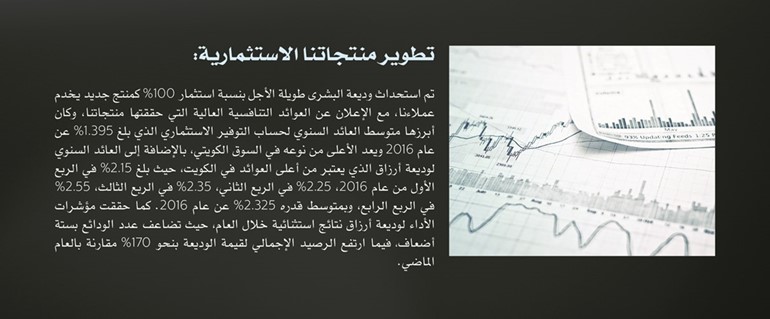 تطوير منتجاتنا الاستثمارية:
تم استحداث وديعة البشرى طويلة الأجل بنسبة استثمار 100% كمنتج جديد يخدم
عملاءنا، مع الإعلان عن العوائد التنافسية العالية التي حققتها منتجاتنا، وكان
أبرزها متوسط العائد السنوي لحساب التوفير الاستثماري الذي بلغ 1.395% عن
عام 2016 ويعد الأعلى من نوعه في السوق الكويتي، بالإضافة إلى العائد السنوي
لوديعة أرزاق الذي يعتبر من أعلى العوائد في الكويت، حيث بلغ 2.15% في الربع
الأول من عام 2016، 2.25% في الربع الثاني، 2.35% في الربع الثالث، 2.55%
في الربع الرابع، وبمتوسط قدره 2.325% عن عام 2016. كما حققت مؤشرات
الأداء لوديعة أرزاق نتائج استثنائية خلال العام، حيث تضاعف عدد الودائع بستة
أضعاف، فيما ارتفع الرصيد الإجمالي لقيمة الوديعة بنحو 170% مقارنة بالعام
الماضي.
May
93% Updating Feeds